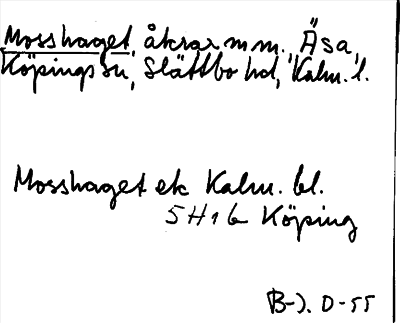 Mosshaget, åkrar m m., Äsa,
Köpings sn, Slättbo hd, Kalm. l.
Mosshaget ek Kalm. bl.
5H1b Köping
B-). D-55